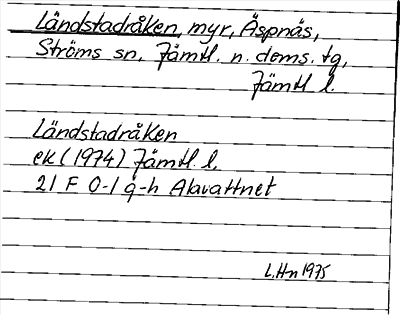 Ländstadråken, myr, Äspnäs,
Ströms sn, Jämtl. n. doms. tg,
Jämtl l.
Ländstadråken
ek (1974) Jämtl. l.
21 F 0-1 g-h Alavattnet
L.Hn 1975